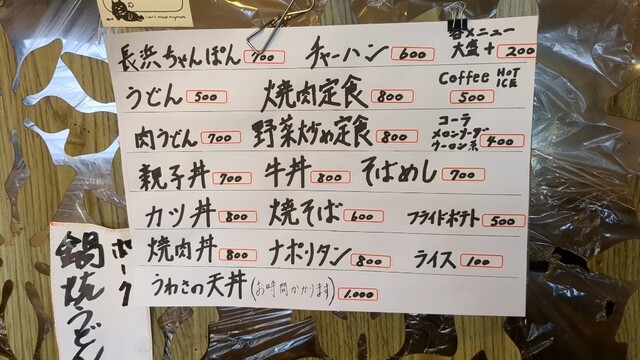 長浜ちゃんぽん 700 チャーハン 600 各メニュー
大盛 + 200
うどん 500 焼肉定食 800 Coffee HOT
ICE
500
肉うどん 700 野菜炒め定食 800 コーラ
メロンソーダ
ウーロン茶 400
親子丼 700 牛丼 800 そばめし 700
カツ丼 800 焼そば 600 フライドポテト 500
焼肉丼 800 ナポリタン 800 ライス 100
うわさの天丼 (お時間かかります) 1.000
ホーク
鍋焼うどん